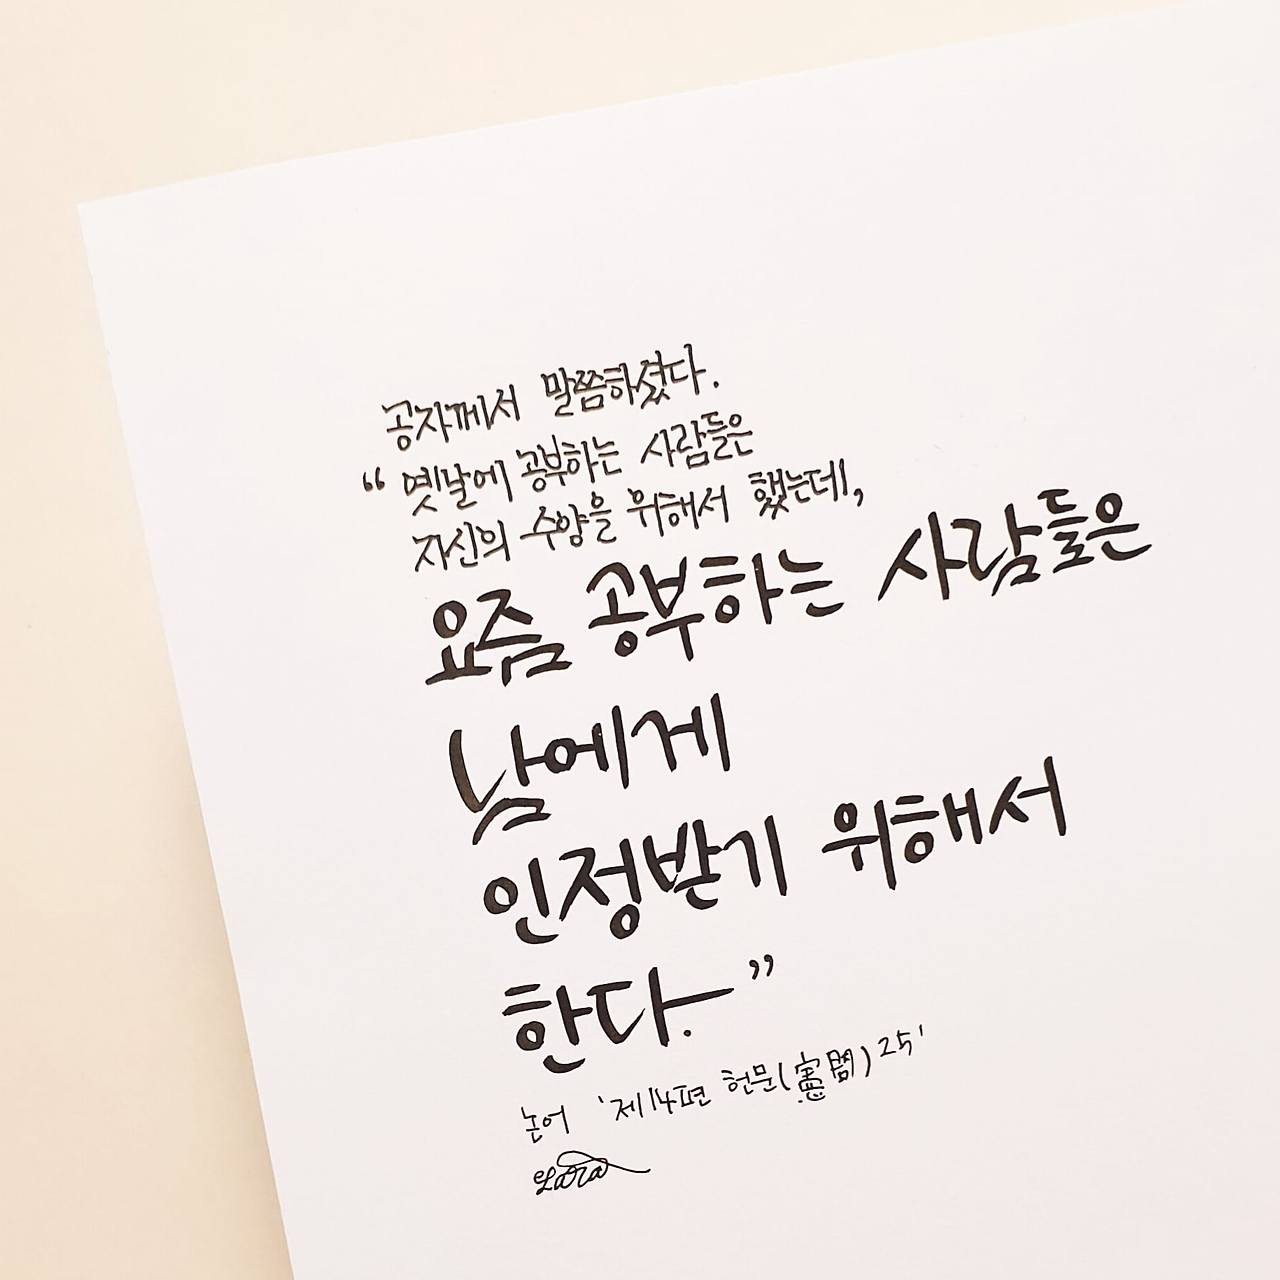 공자께서 말씀하셨다.
“옛날에 공부하는 사람들은
자신의 수양을 위해서 했는데,
요즘 공부하는 사람들은
남에게
인정받기 위해서
한다.”
논어 '제14편 헌문(憲問) 25'
Lara